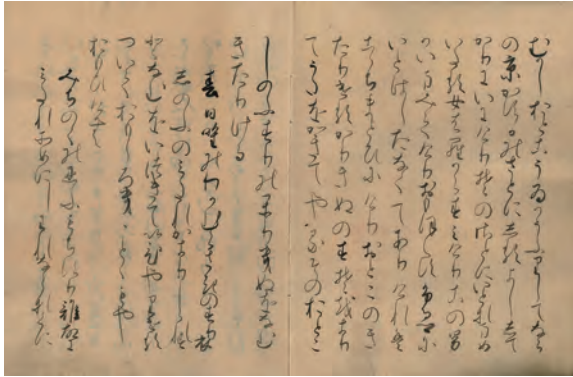 むかしおとこうゐかうふりしてなら
の京かすかのさとにしるよしして
かりにいにけりそのさとにいとなまめ
いたる女はらからすみけりこの男
かいまみてけりおもほえすふるさとに
いとはしたなくてありけれは
心ちまとひにけりおとこのき
たりけるかりきぬのすそをきり
てうたをかきてやるそのおとこ
しのふすりのかりきぬをなむ
きたりける
春日野のわかむらさきのすり衣
しのふのみたれかきりしられす
となむをいつきていひやりける
ついておもしろきことゝもや
おもひけむ
みちのくの忍ふもちすり誰故
みたれそめにしわれならなくに